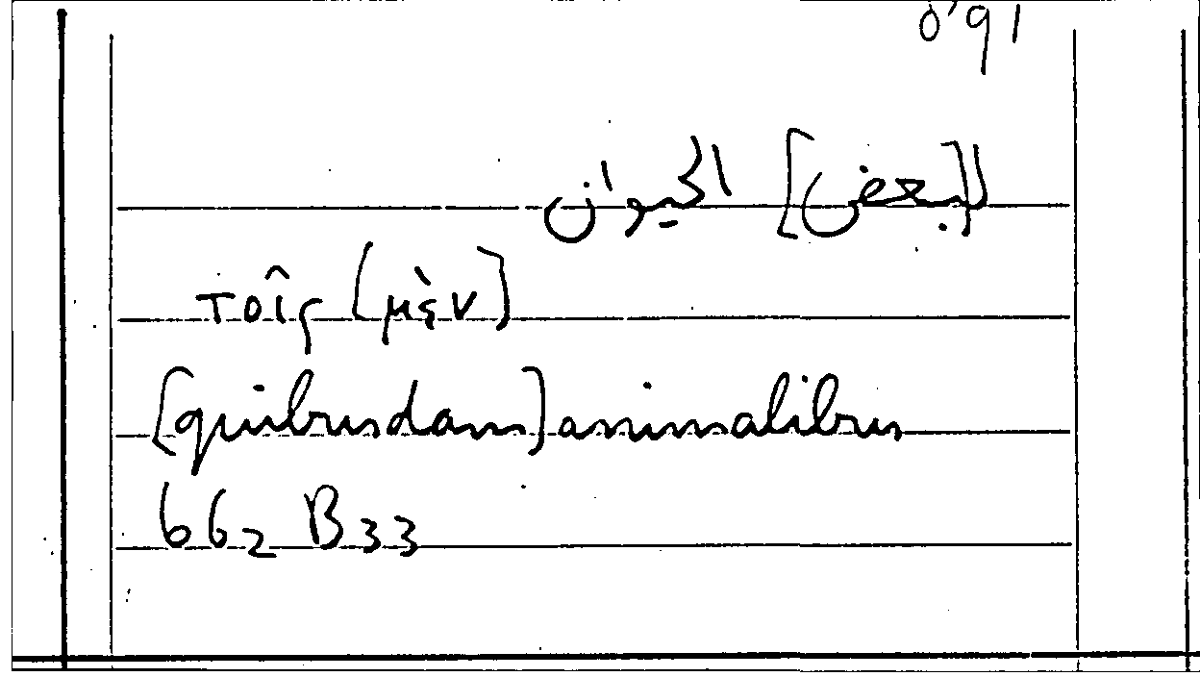 ل[بعض] الحيوان
τοῖς [μὲν]
[quibusdam] animalibus
662 B33